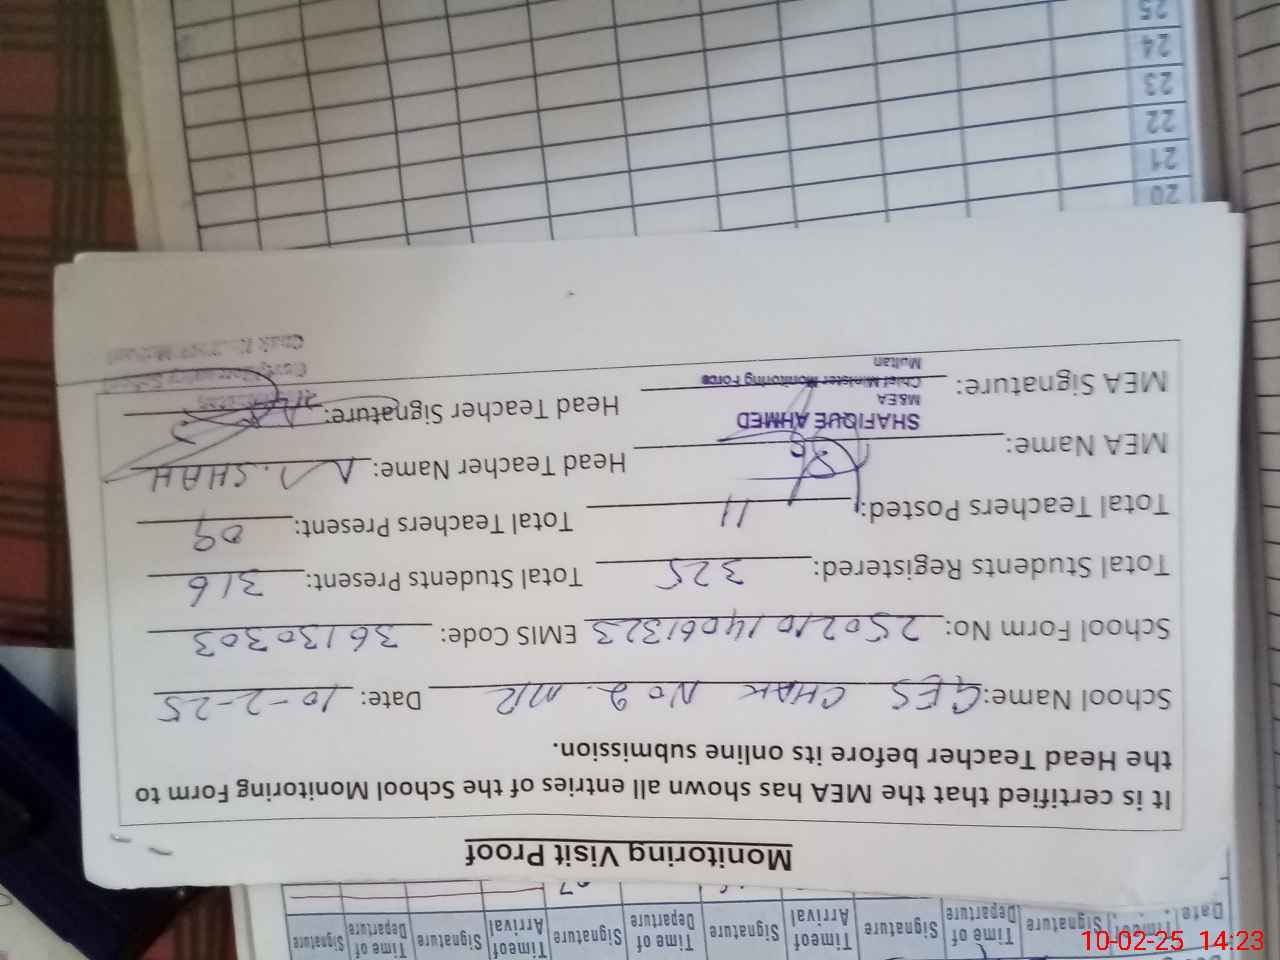 Monitoring Visit Proof
It is certified that the MEA has shown all entries of the School Monitoring Form to
the Head Teacher before its online submission.
School Name: GES CHAK NO 2. MR Date: 10-2-25
School Form No: 250210 14061323 EMIS Code: 36130303
Total Students Registered: 325 Total Students Present: 316
Total Teachers Posted: 11 Total Teachers Present: 09
MEA Name: Head Teacher Name: SHAH
SHAFIQUE AHMED
M&EA
Chief Minister Monitoring Force
Multan
MEA Signature: Head Teacher Signature:
Date Signature Time of Departure Signature Timeof Arrival Signature Time of Departure Signature Timeof Arrival Signature Time of Departure Signature
07
20
21
22
23
24
25
10-02-25 14:23